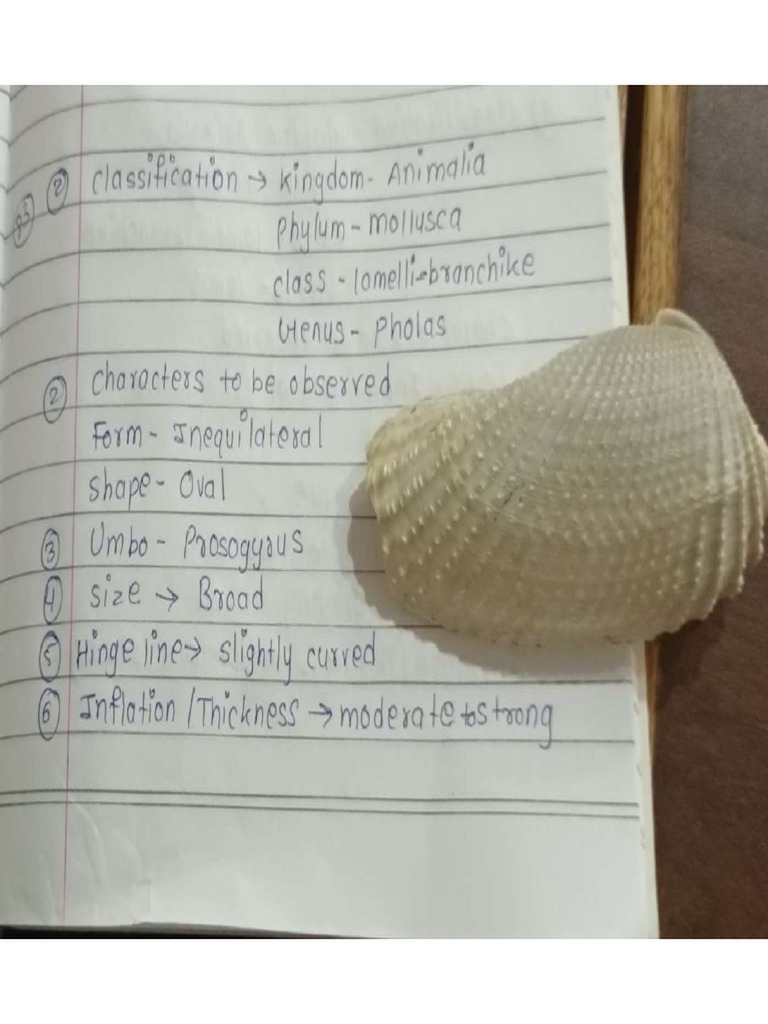 ② Classification → Kingdom - Animalia
Phylum - Mollusca
Class - lamelli-branchike
Genus - Pholas
② Characters to be observed
Form - Inequilateral
Shape - Oval
③ Umbo - Prosogyrus
④ Size → Broad
⑤ Hinge line → slightly curved
⑥ Inflation / Thickness → moderate to strong